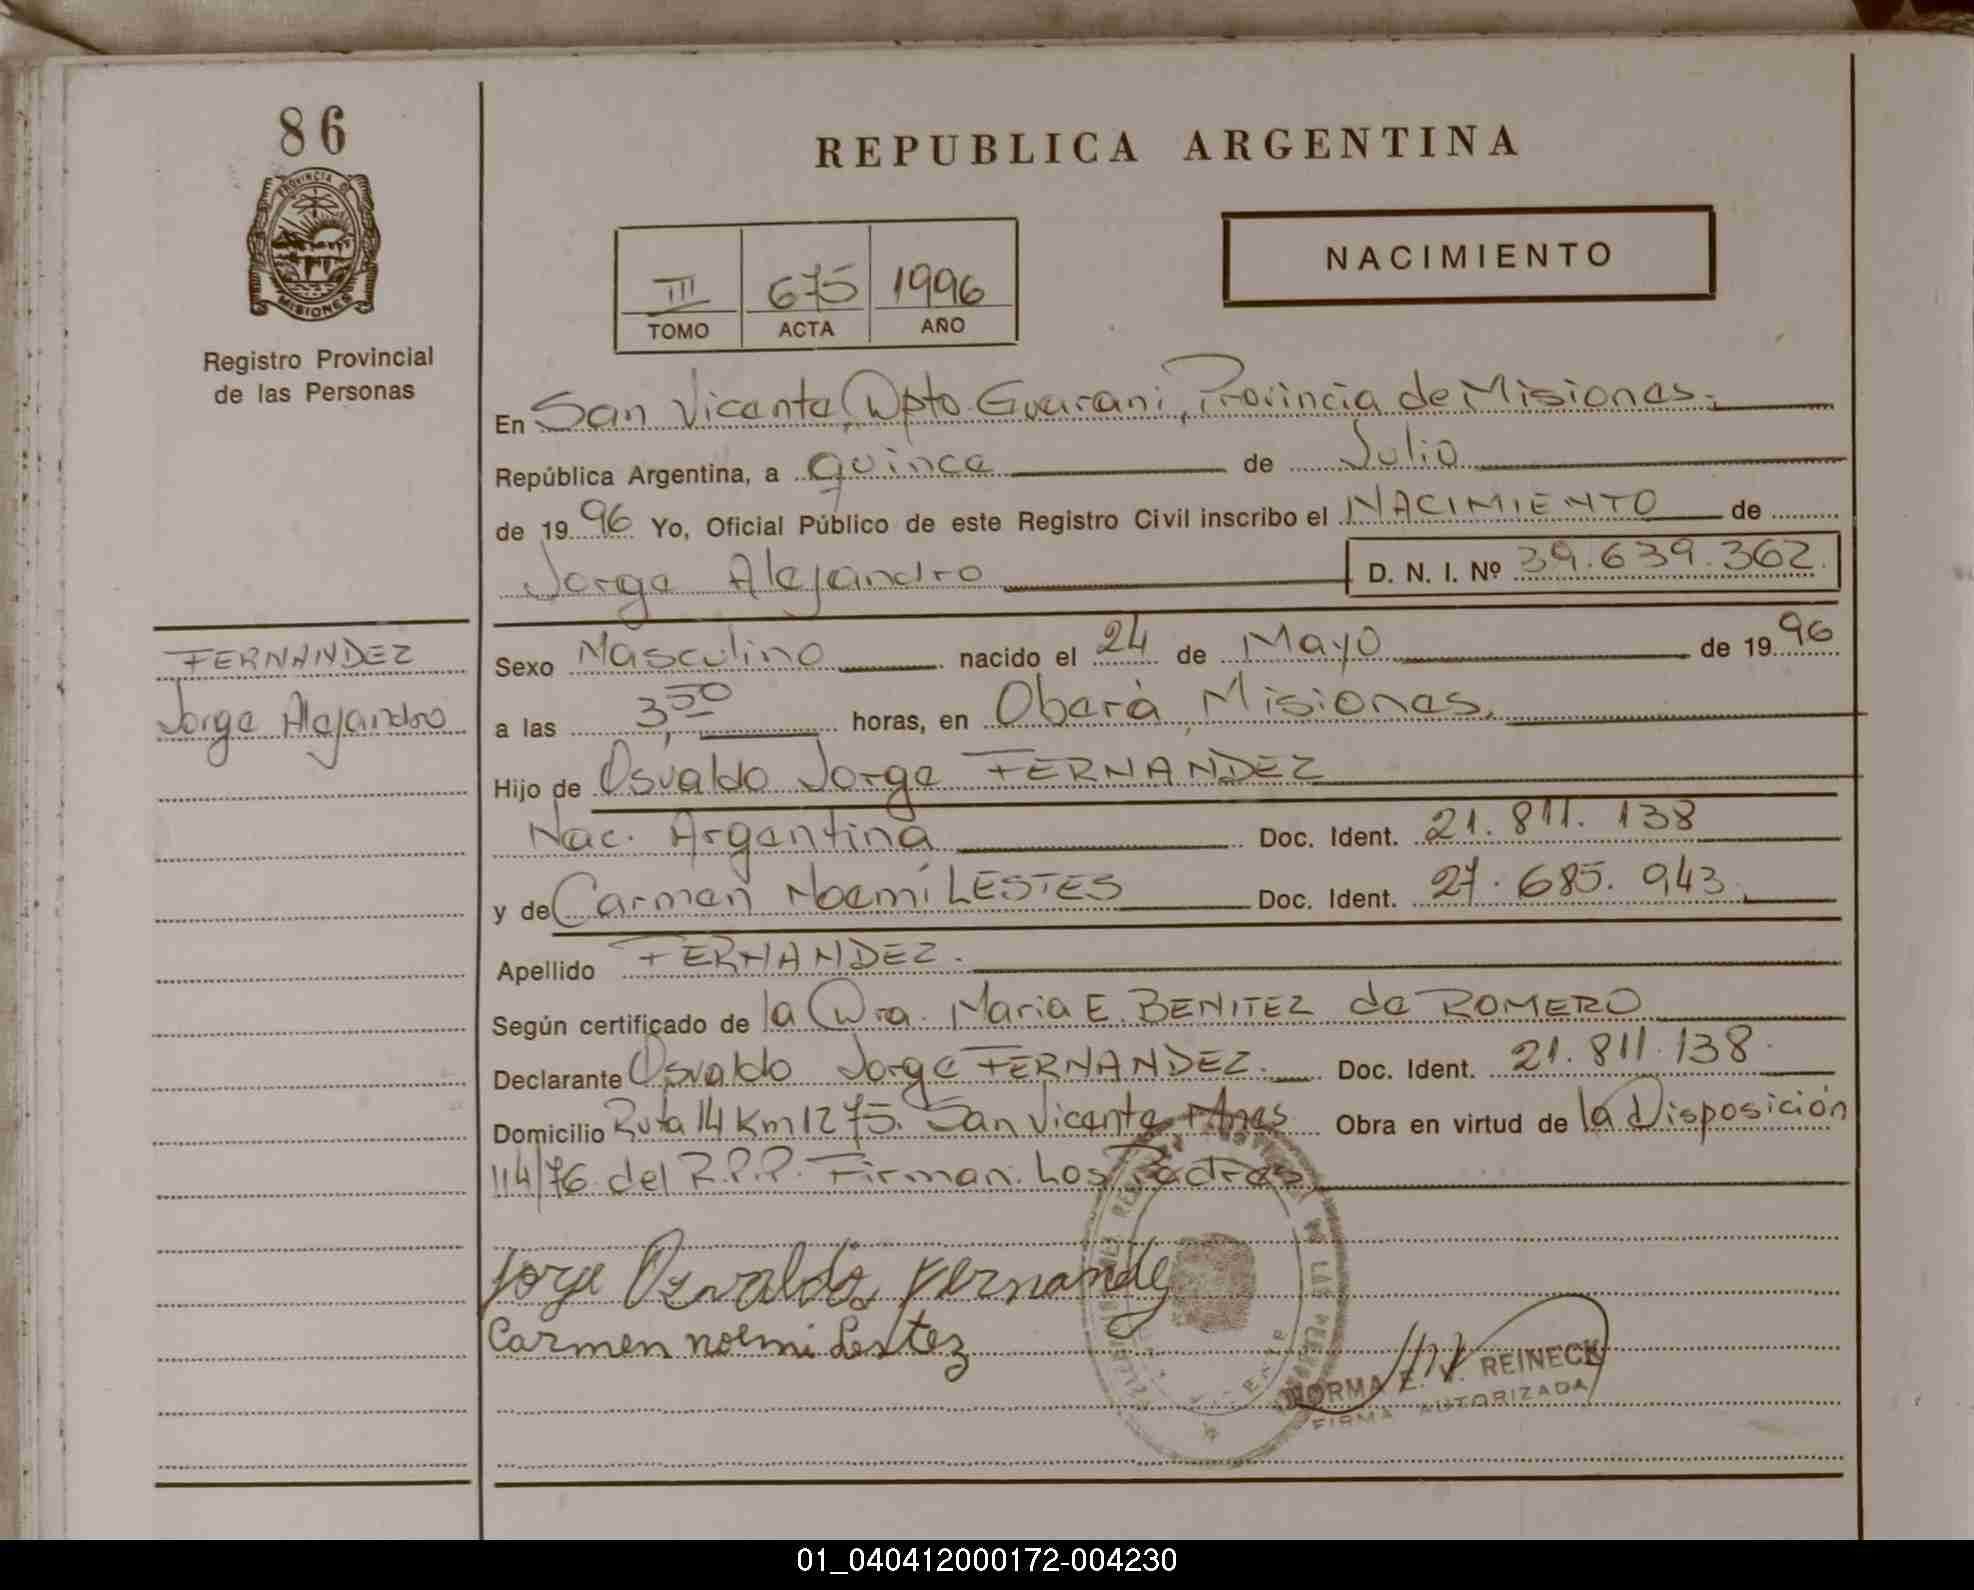 86
PROVINCIA D
MISIONES
Registro Provincial
de las Personas
FERNANDEZ
Jorge Alejandro
REPUBLICA ARGENTINA
NACIMIENTO
III 675 1996
TOMO ACTA AÑO
En San Vicente, Dpto. Guarani, Provincia de Misiones.
República Argentina, a quince de Julio
de 1996 Yo, Oficial Público de este Registro Civil inscribo el NACIMIENTO de
Jorge Alejandro D. N. I. Nº 39.639.362.
Sexo Masculino nacido el 24 de Mayo de 1996
a las 3,50 horas, en Oberá, Misiones.
Hijo de Osvaldo Jorge FERNANDEZ
Nac. Argentina Doc. Ident. 21.811.138
y de Carmen Noemí LESTES Doc. Ident. 27.685.943.
Apellido FERNANDEZ.
Según certificado de la Dra. Maria E. BENITEZ de ROMERO
Declarante Osvaldo Jorge FERNANDEZ. Doc. Ident. 21.811.138.
Domicilio Ruta 14 Km 1275. San Vicente, Mnes Obra en virtud de la Disposición
114/76 del R.P.P. Firman. Los Padres
Jorge Osvaldo Fernandez
Carmen noemi Lestez
NORMA E. V. REINECK
FIRMA AUTORIZADA
01_040412000172-004230